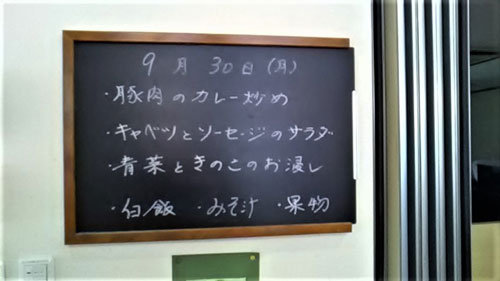 9月30日(月)
・豚肉のカレー炒め
・キャベツとソーセージのサラダ
・青菜ときのこのお浸し
・白飯 ・みそ汁 ・果物